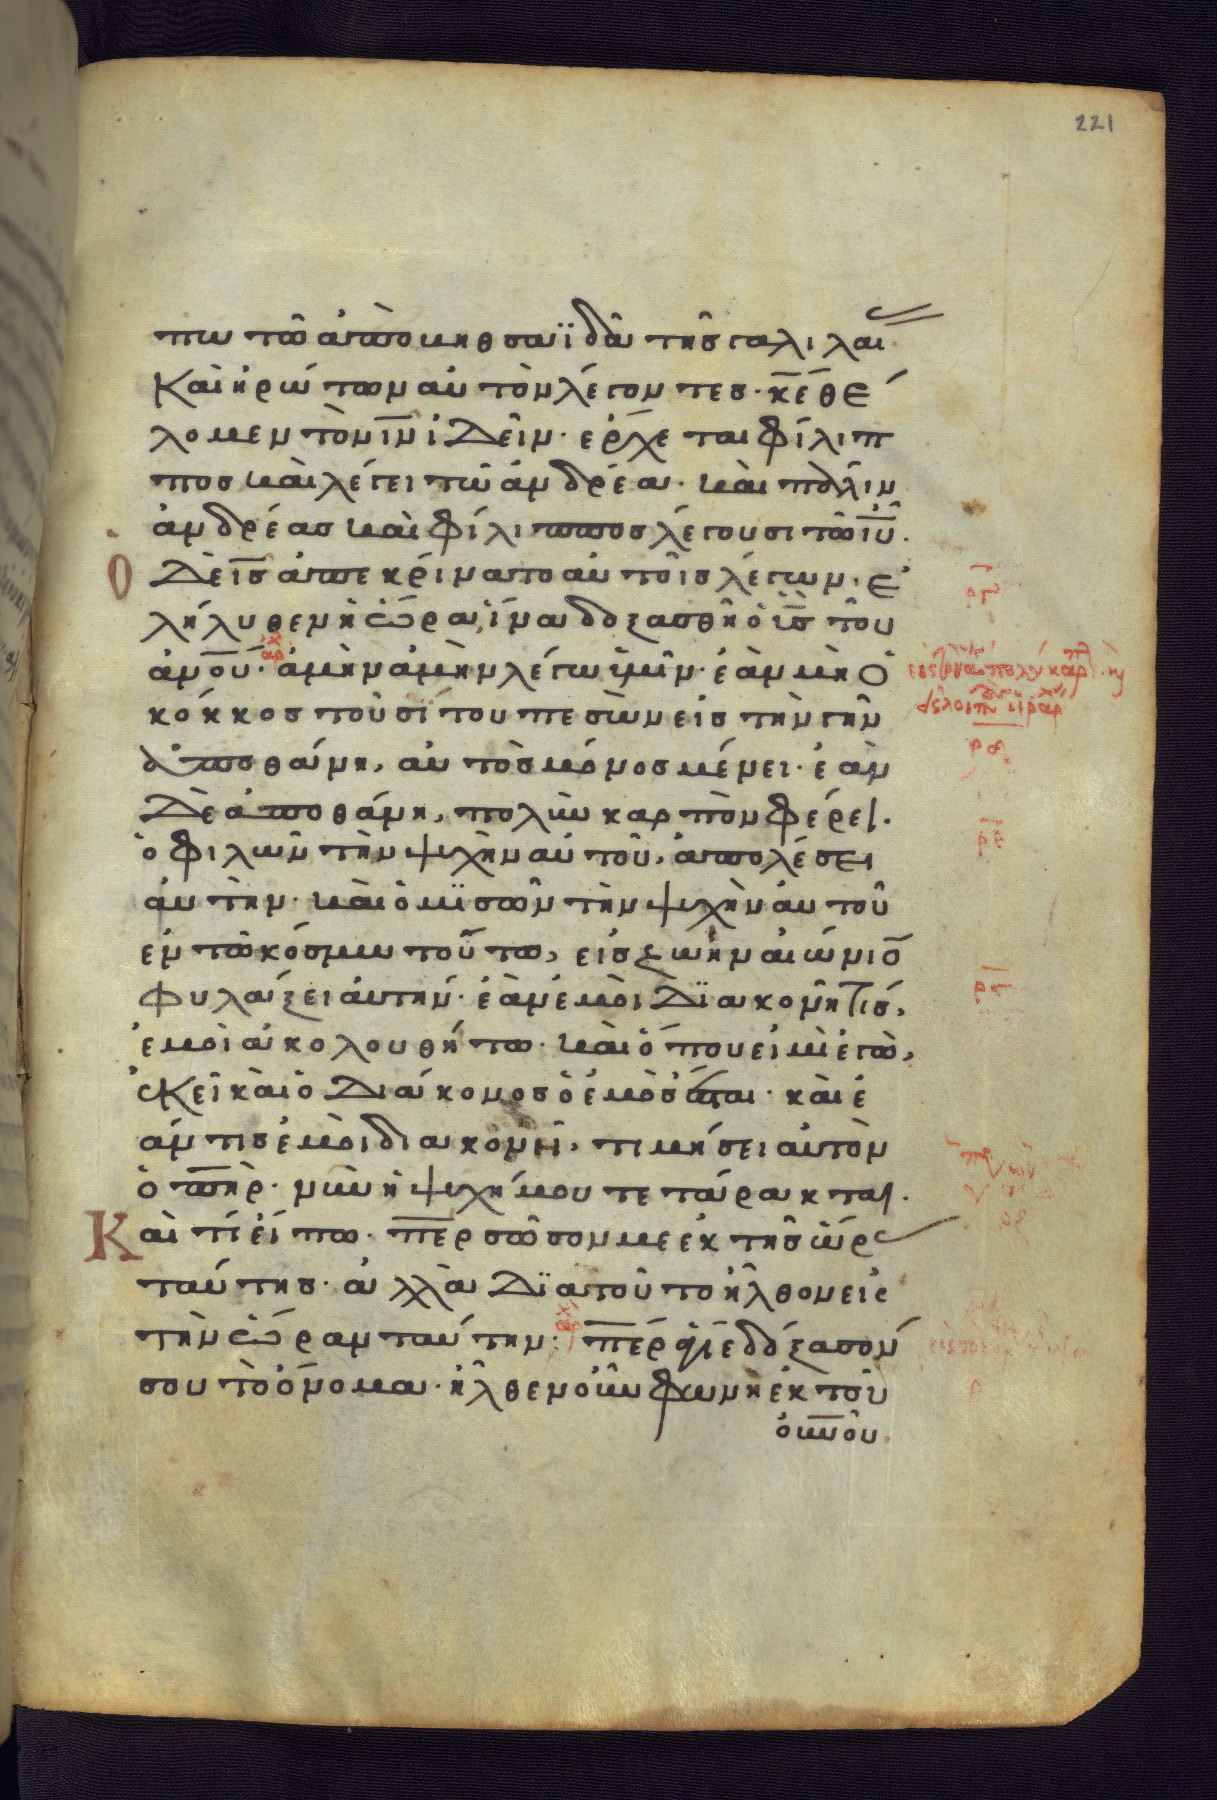 221
πω τῶ ἀπὸ βηθσαϊδὰ τῆς γαλιλαί
Καὶ ἠρώτων αὐτὸν λέγοντες· κ̅ε̅ θέ
λομεν τὸν ι̅ν̅ ἰδεῖν· ἔρχεται φίλιπ
πος καὶ λέγει τῶ ἀνδρέα· καὶ πάλιν
ἀνδρέας καὶ φίλιππος λέγουσι τῶ ι̅υ̅.
Ὁ
δὲ ι̅ς̅ ἀπεκρίνατο αὐτοῖς λέγων· ἐ
λήλυθεν ἡ ὥρα ἵνα δοξασθῆ ὁ υ̅ς̅ τοῦ
α̅ν̅ο̅υ̅· ἀμὴν ἀμὴν λέγω ὑμῖν· ἐὰν μὴ ὁ
κόκκος τοῦ σίτου πεσὼν εἰς τὴν γῆν
ἀποθάνη, αὐτὸς μόνος μένει· ἐὰν
δὲ ἀποθάνη, πολὺν καρπὸν φέρει.
ὁ φιλῶν τὴν ψυχὴν αὐτοῦ, ἀπολέσει
αὐτὴν· καὶ ὁ μισῶν τὴν ψυχὴν αὐτοῦ
ἐν τῶ κόσμω τούτω, εἰς ζωὴν αἰώνιο
φυλάξει αὐτήν· ἐὰν ἐμοὶ διακονῆ τίς,
ἐμοὶ ἀκολουθήτω· καὶ ὅπου εἰμὶ ἐγὼ,
ἐκεῖ καὶ ὁ διάκονος ὁ ἐμὸς ἔσται· καὶ ἐ
άν τις ἐμοὶ διακονῆ, τιμήσει αὐτὸν
ὁ π̅η̅ρ̅· νῦν ἡ ψυχή μου τετάρακται.
Κ
αὶ τί εἴπω· π̅ε̅ρ̅ σῶσον με ἐκ τῆς ὥρ
ταύτης· ἀλλὰ διὰ τοῦτο ἦλθον εἰς
τὴν ὥραν ταύτην· π̅ε̅ρ̅ δόξασόν
σου τὸ ὄνομα· ἦλθεν οὖν φωνὴ ἐκ τοῦ
ο̅υ̅ν̅οῦ